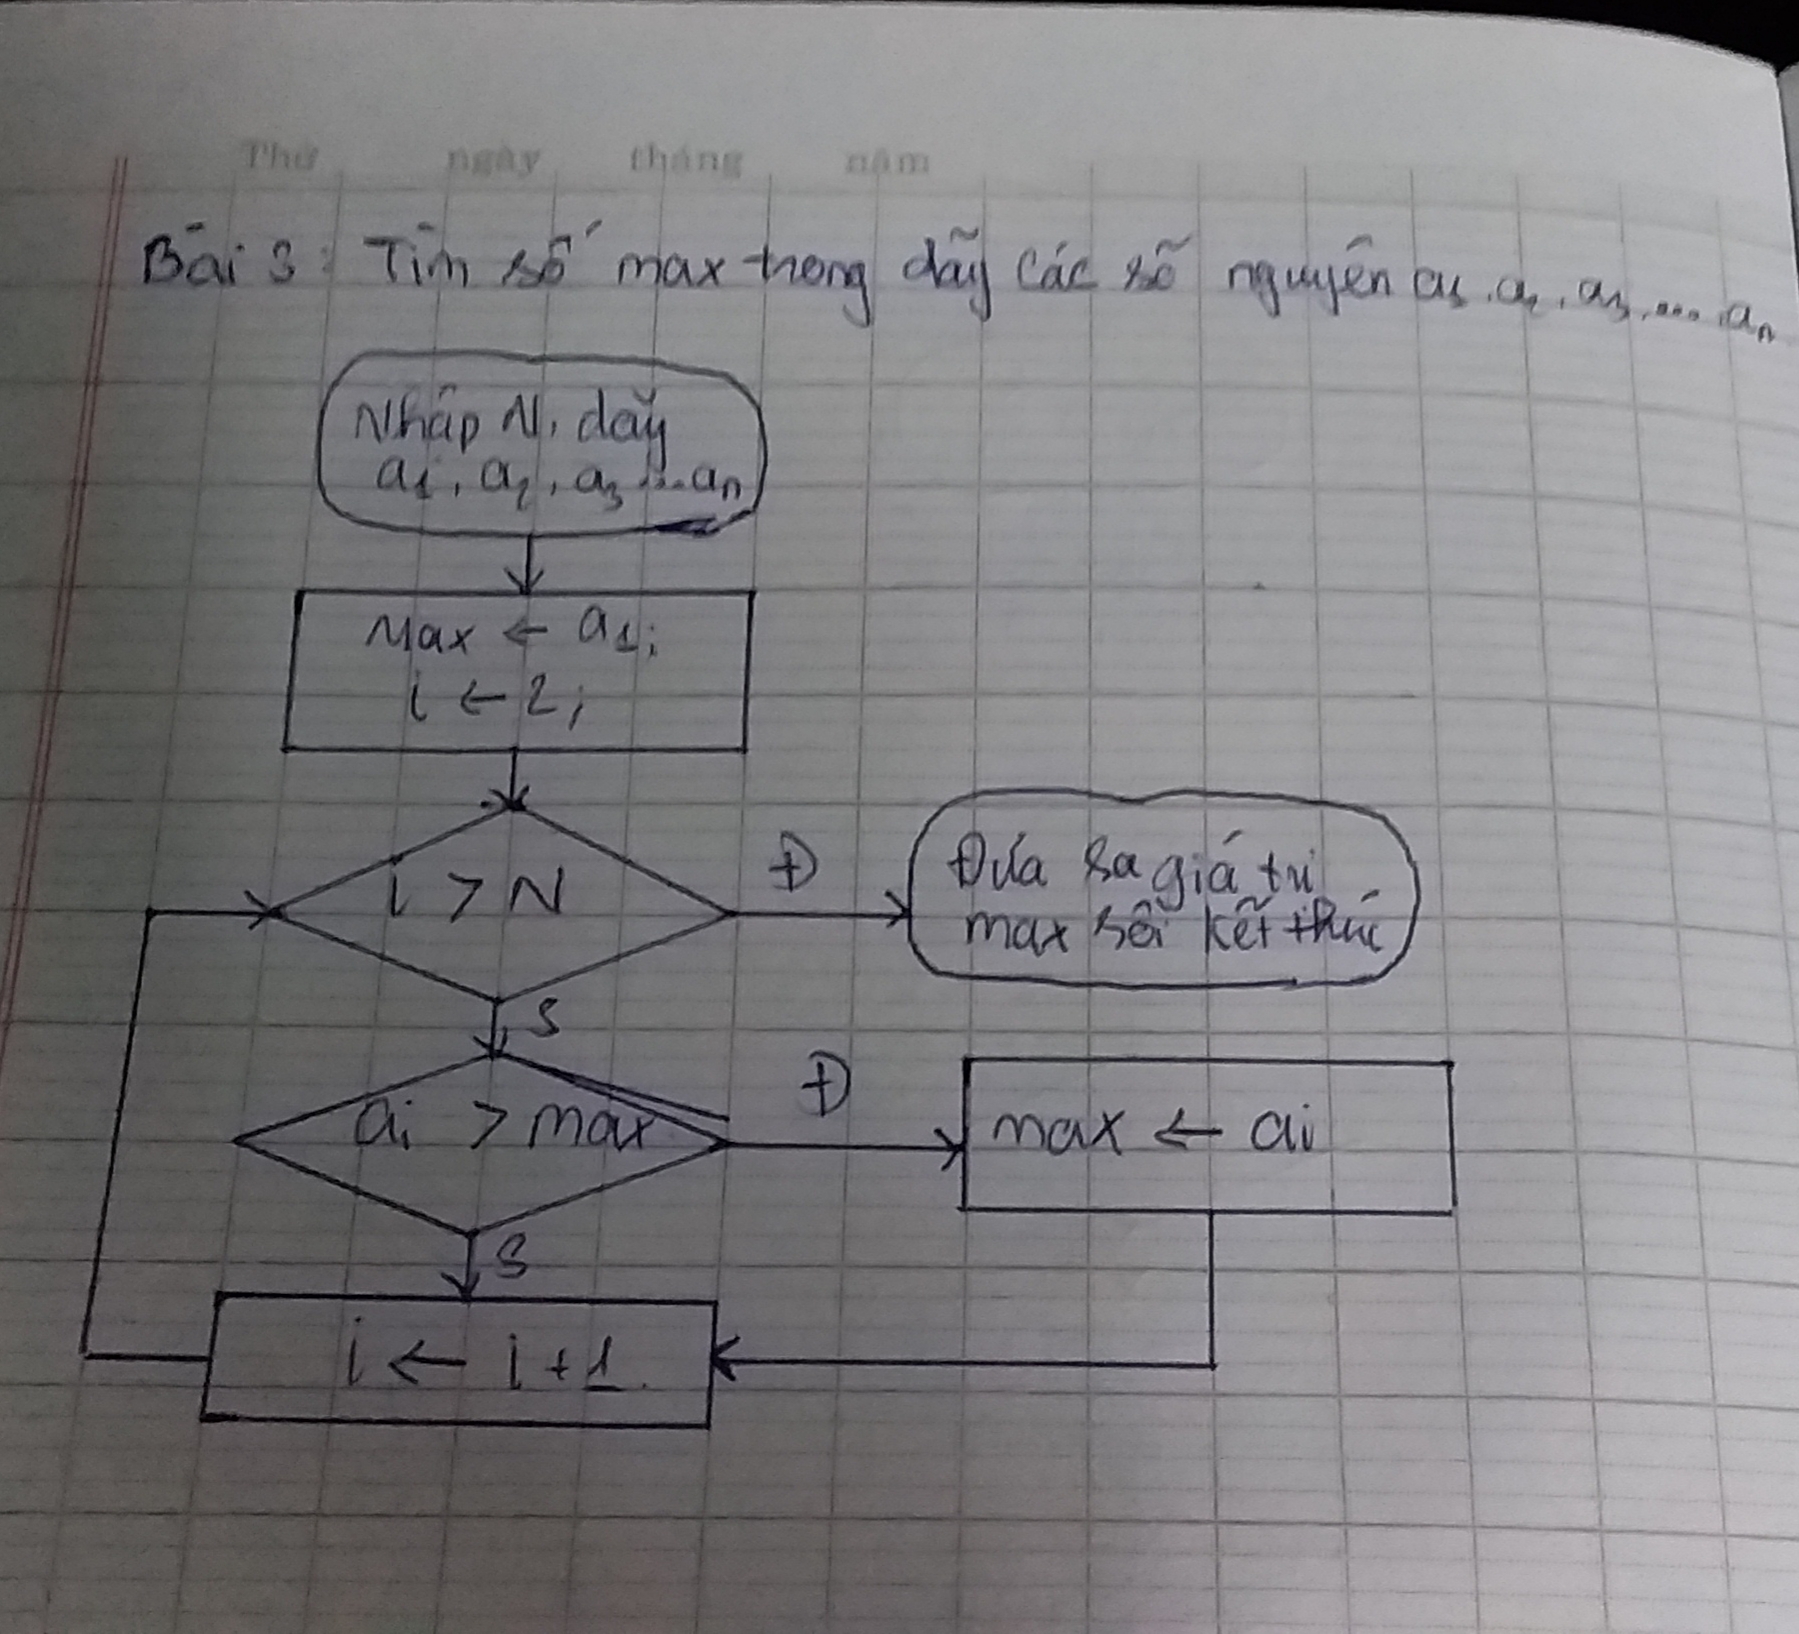 Thứ ngày tháng năm
Bài 3: Tìm số max trong dãy các số nguyên a1, a2, a3, ... an
Nhập N, dãy
a1, a2, a3 ... an
Max ← a1;
i ← 2;
i > N
Đ
Đưa ra giá trị
max rồi kết thúc
S
ai > max
Đ
max ← ai
S
i ← i + 1.